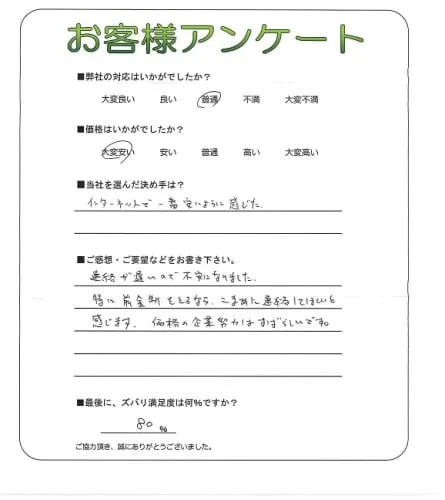 お客様アンケート
■弊社の対応はいかがでしたか?
大変良い 良い 普通 不満 大変不満
■価格はいかがでしたか?
大変安い 安い 普通 高い 大変高い
■当社を選んだ決め手は?
インターネットで一番安いように感じた.
■ご感想・ご要望などをお書き下さい。
連絡が遅いので不安になりました.
特に前金制をとるなら、こまめに連絡してほしいと
感じます. 価格の企業努力はすばらしいです。
■最後に、ズバリ満足度は何%ですか?
80 %
ご協力頂き、誠にありがとうございました。